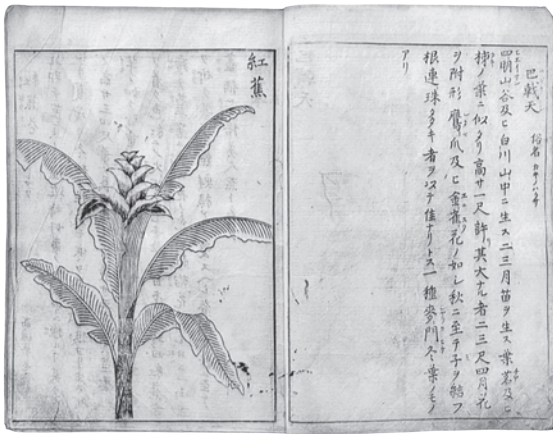 巴戟天 俗名カキノハグサ
四明山谷及ヒ白川山中ニ生ス二三月苗ヲ生ス葉茗及ヒ
柿ノ葉ニ似タリ高サ一尺許其大ナル者二三尺四月花
ヲ附形鷹爪及ヒ金雀花ノ如シ秋ニ至テ子ヲ結フ
根連珠 者ヲ 佳ナリトス一種麥門冬葉ノモノ
アリ
紅蕉